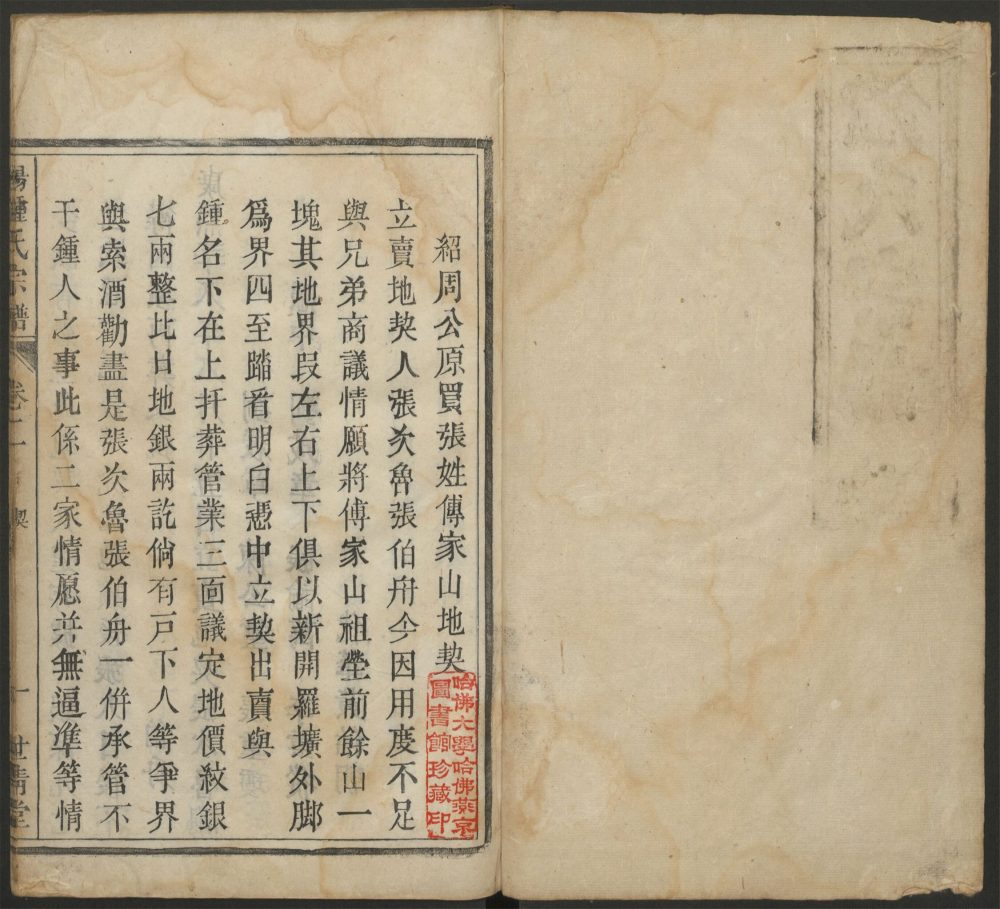 紹周公原買張姓傅家山地契
立賣地契人張次魯張伯舟今因用度不足
與兄弟商議情願將傅家山祖塋前餘山一
塊其地界段左右上下俱以新開羅壙外脚
爲界四至踏看明白憑中立契出賣與
鍾名下在上扦葬管業三面議定地價紋銀
七兩整比日地銀兩訖倘有戸下人等爭界
與索酒勸盡是張次魯張伯舟一併承管不
干鍾人之事此係二家情愿并無逼準等情
鍾氏宗譜 卷二 契 一 世清堂
哈佛大學哈佛燕京
圖書館珍藏印